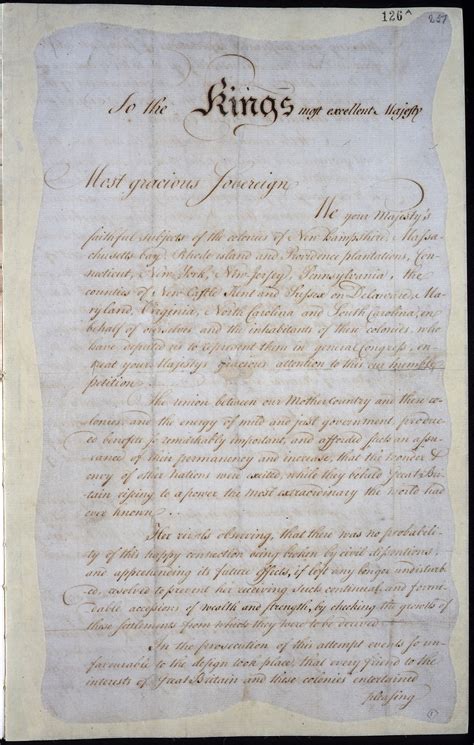 126^
237
To the Kings most excellent Majesty
Most gracious Sovereign
We your Majesty's
faithful subjects of the colonies of New Hampshire, Massa-
chusetts bay, Rhode island and Providence plantations, Con-
necticut, New York, New Jersey, Pennsylvania, the
counties of New Castle Kent and Sussex on Delaware, Ma-
ryland, Virginia, North Carolina and South Carolina, in
behalf of ourselves and the inhabitants of these colonies, who
have deputed us to represent them in general Congress, en-
treat your Majesty's gracious attention to this our humble
petition.
The union between our Mother Country and these co-
lonies, and the energy of mild and just government, produc-
ed benefits so remarkably important, and afforded such an assu-
rance of their permanency and increase, that the wonder &
envy of other nations were excited, while they beheld Great Bri-
tain rising to a power the most extraordinary the world had
ever known.
Her rivals observing, that there was no probabili-
ty of this happy connection being broken by civil dissentions,
and apprehending its future effects, if left any longer undisturb-
ed, resolved to prevent her receiving such continual and formi-
dable accessions of wealth and strength, by checking the growth of
these settlements from which they were to be derived.
In the prosecution of this attempt events so un-
favourable to the design took place, that every friend to the
interests of Great Britain and these colonies entertained
pleasing